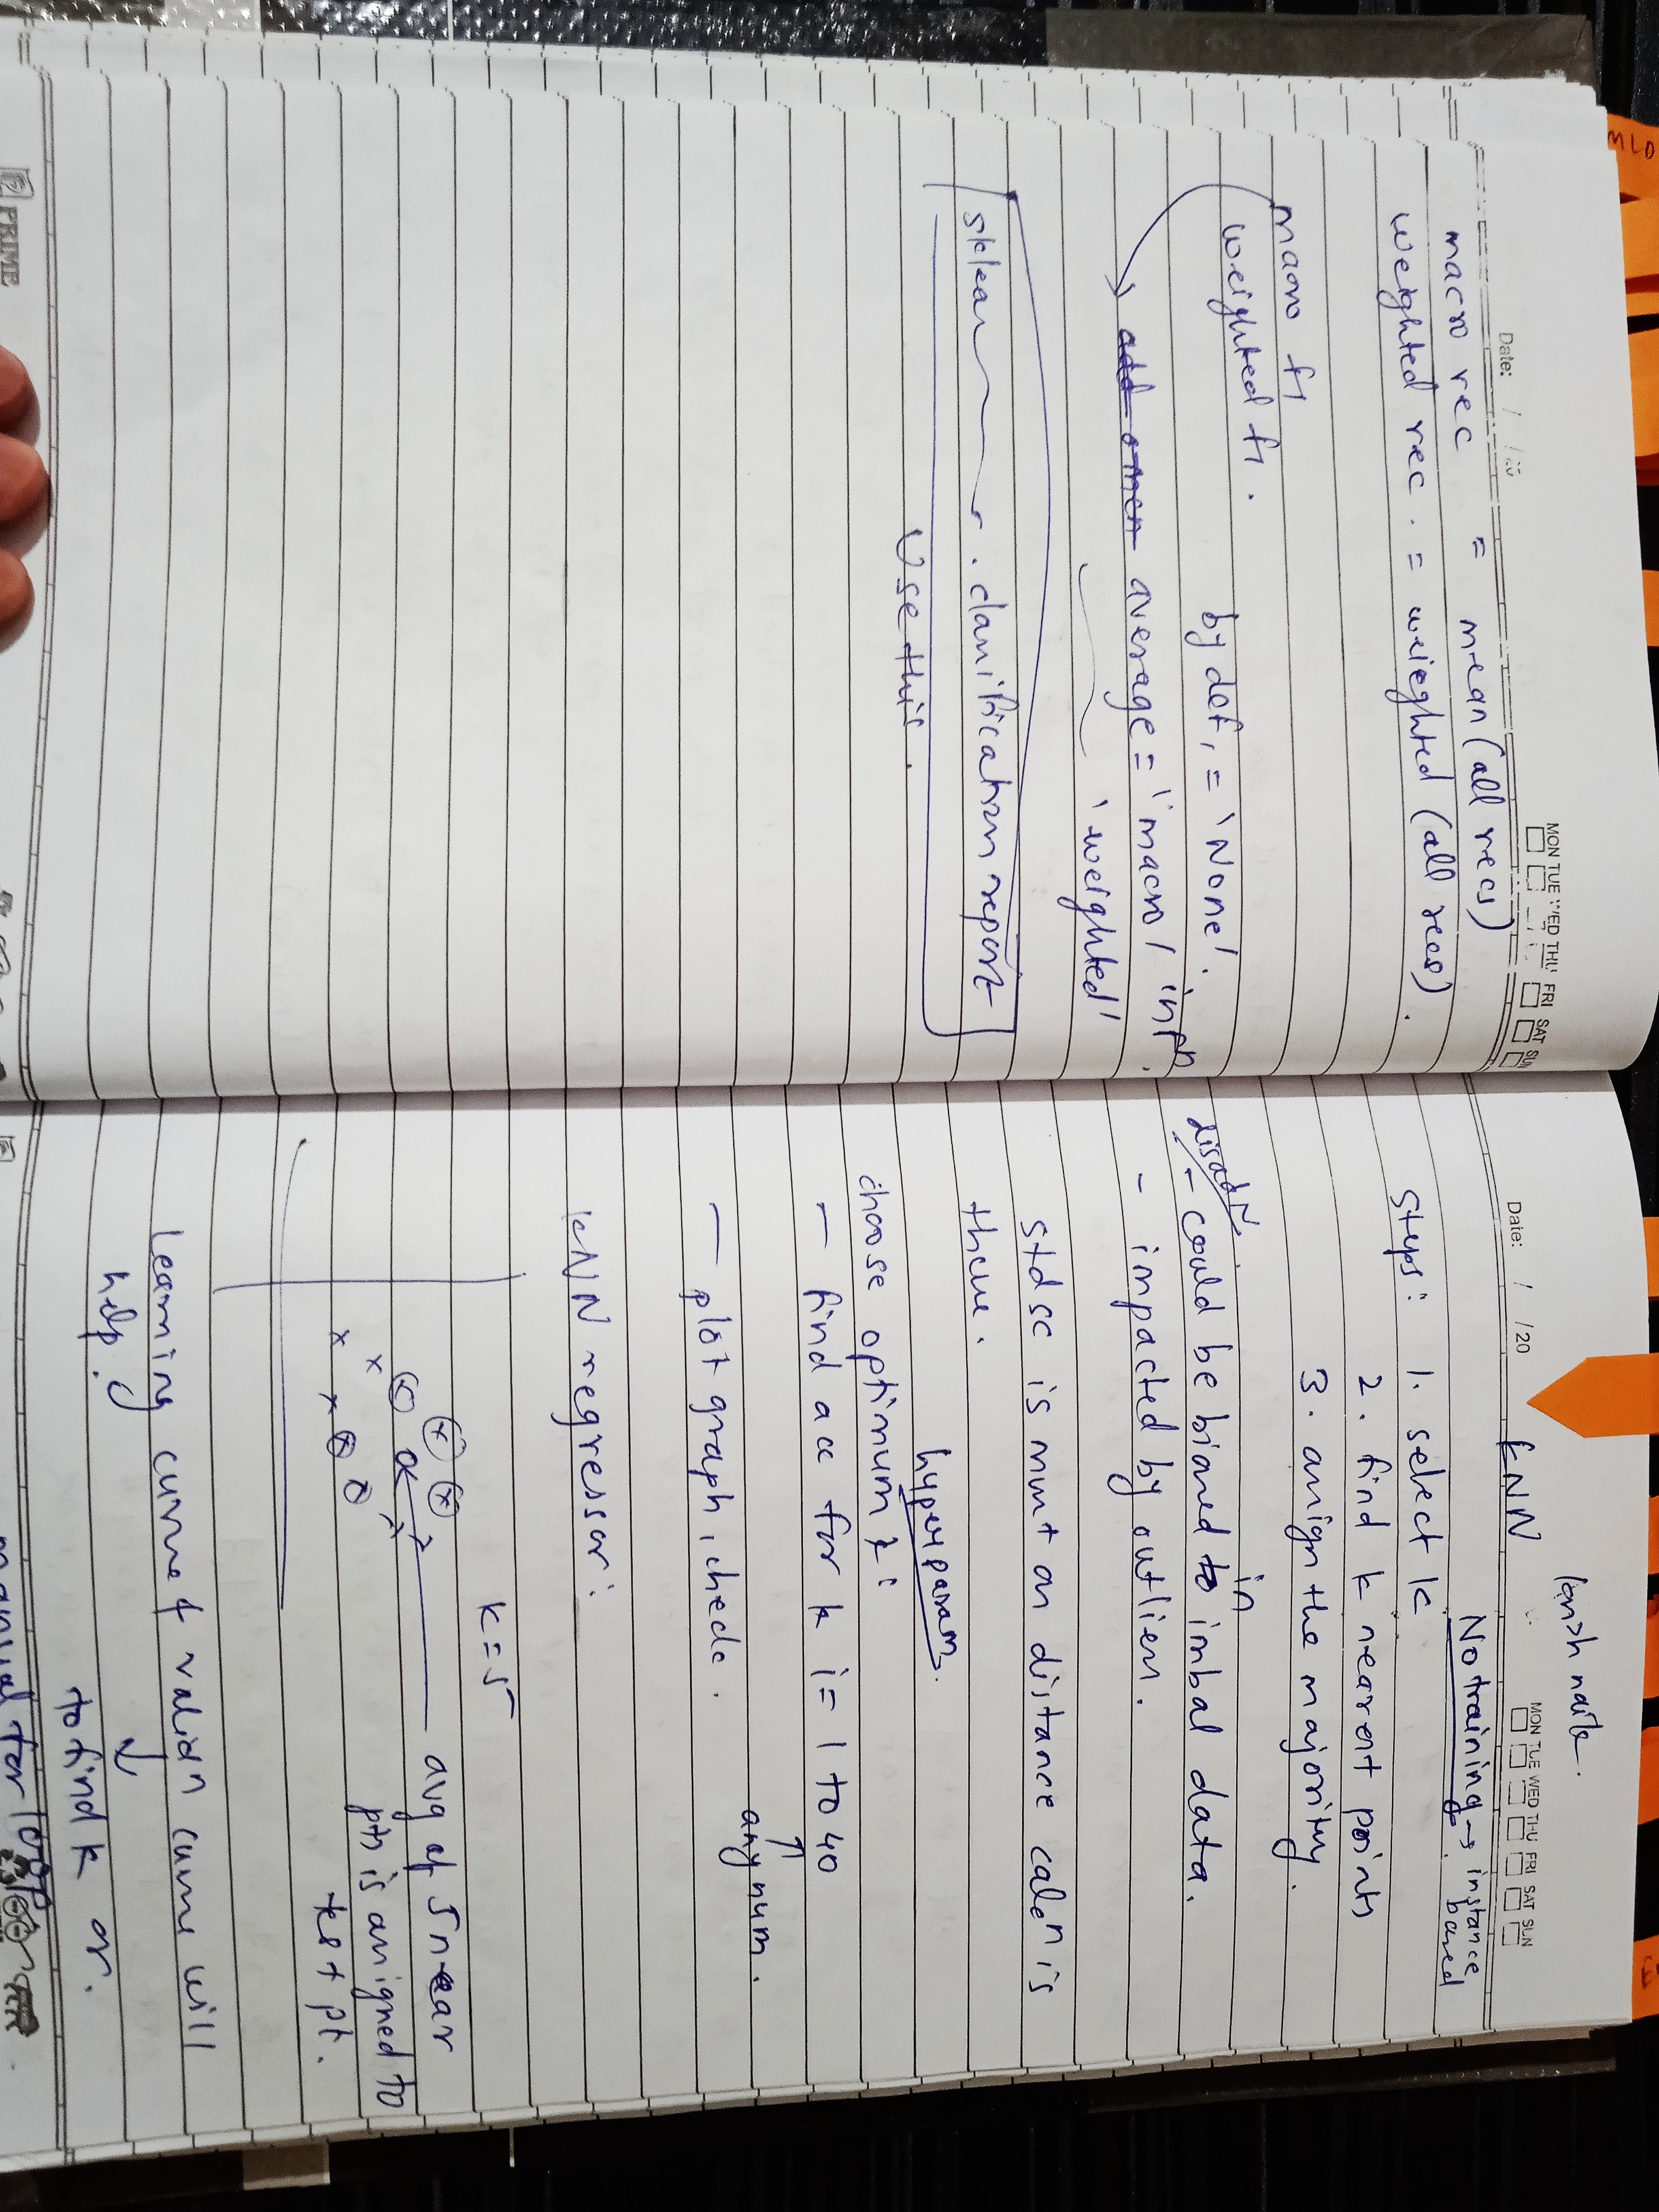 MLO
Date: / /20
MON TUE WED THU FRI SAT SUN
macro rec = mean (all recs)
weighted rec. = weieghted (all recs).
macro f1
weighted f1. by def, = 'None'.
average = 'macro' in fn.
'weighted'
sklearn . classification report
Use this.
PRIME
Date: / /20
MON TUE WED THU FRI SAT SUN
kNN
No training → instance based
Steps: 1. select k
2. find k nearest points
3. assign the majority.
disadv
- could be biased to in imbal data.
- impacted by outliers.
std sc is must as distance calcn is
there.
hyperparam.
choose optimum k:
- find acc for k i = 1 to 40
any num.
- plot graph, check.
kNN regressor:
k = 5
avg of 5 near
pts is assigned to
test pt.
learning curve & validn curve will
help.
to find k or.
manual for loop